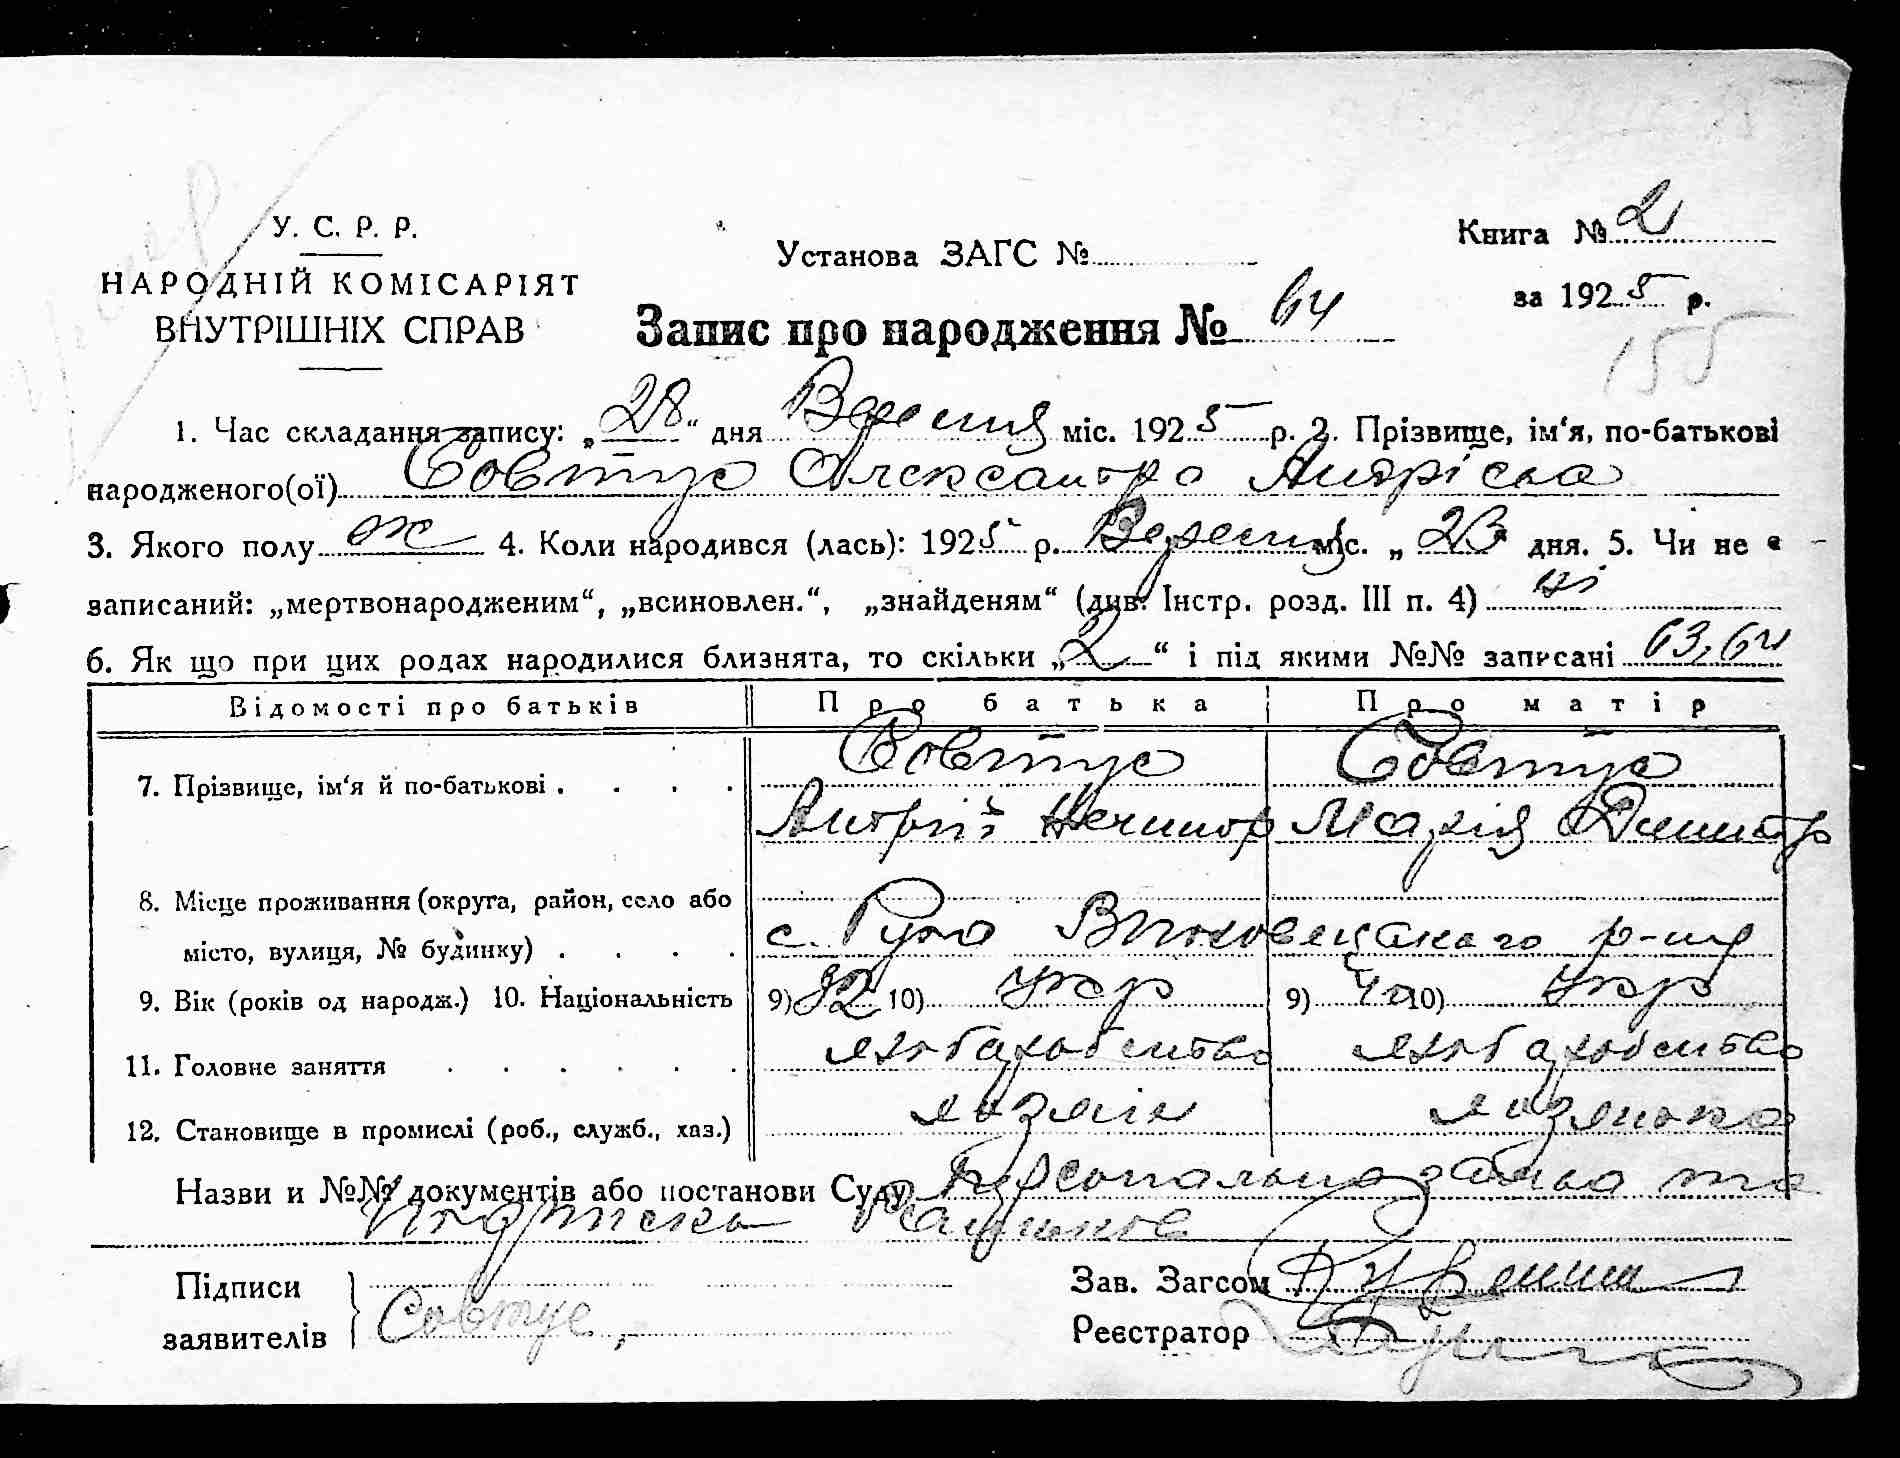 У. С. Р. Р.
НАРОДНІЙ КОМІСАРІЯТ
ВНУТРІШНІХ СПРАВ
Установа ЗАГС №
Книга № 2
за 1925 р.
Запис про народження № 64
155
1. Час складання запису: „28“ дня Вересня міс. 1925 р. 2. Прізвище, ім‘я, по-батькові
народженого(ої) Совтус Александра Андрієва
3. Якого полу ж 4. Коли народився (лась): 1925 р. Вересня міс. „23“ дня. 5. Чи не є
записаний: „мертвонародженим“, „всиновлен.“, „знайденям“ (див. Інстр. розд. III п. 4) ні
6. Як що при цих родах народилися близнята, то скільки „2“ і під якими №№ записані 63, 64
Відомості про батьків Про батька Про матір
7. Прізвище, ім‘я й по-батькові . . . . Совтус Совтус
Андрій Нечипор Марія Димитр
8. Місце проживання (округа, район, село або
місто, вулиця, № будинку) . . . . с. Руда р-ну
9. Вік (років од народж.) 10. Національність 9) 10) укр 9) 10) укр
11. Головне заняття . . . . . . хліборобство хліборобство
12. Становище в промислі (роб., служб., хаз.) хозяін хозяйка
Назви и №№ документів або постанови Суду Персональна заява та
підписка
Підписи
заявителів Совтус,
Зав. Загсом
Реєстратор